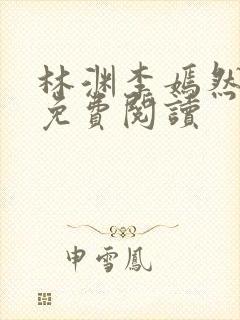 林渊李嫣然
免費閱讀
申雪鳳